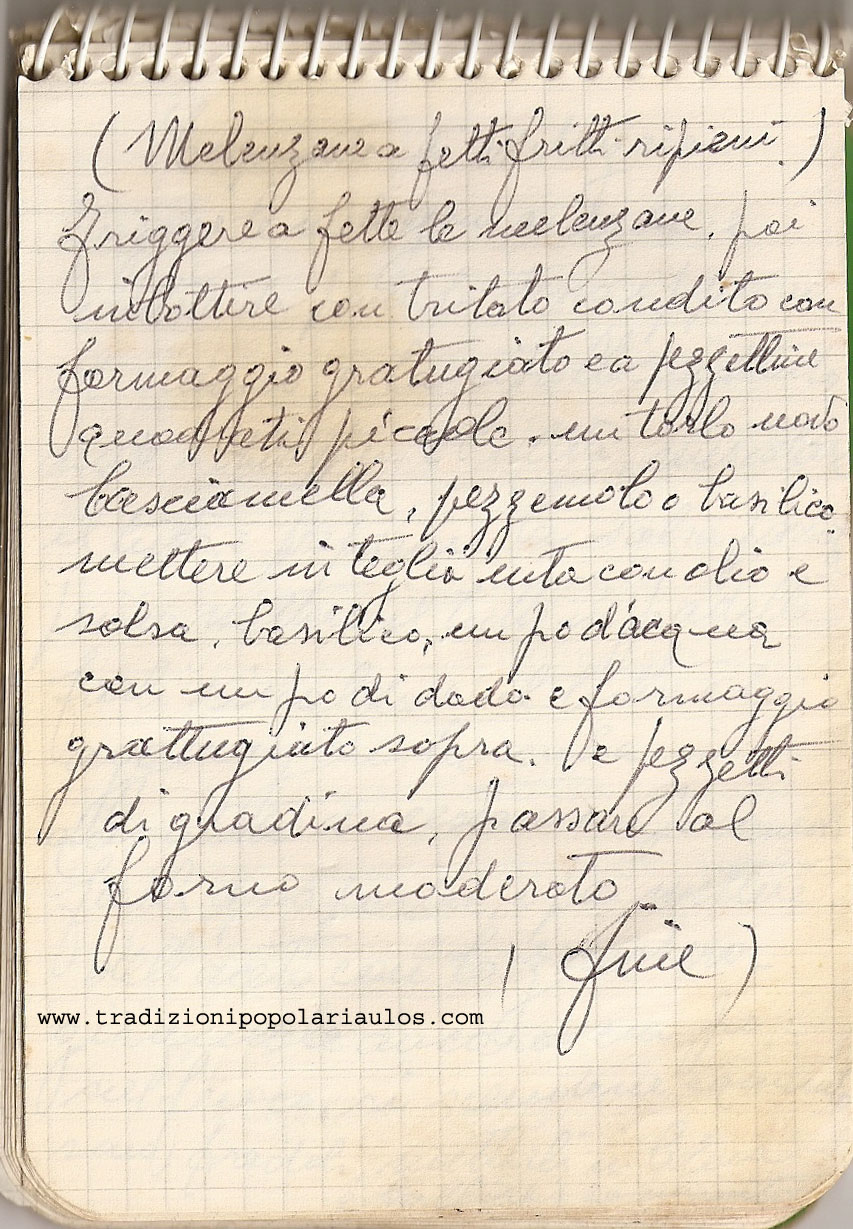 (Melenzane a fetti fritti ripieni.)
friggere a fette le melenzane, poi
imbottire con tritato condito con
formaggio gratugiato e a pezzettine
quadrati piccole. un torlo uovo
basciamella, pezzemolo o basilico.
mettere in teglia unta con olio e
salsa, basilico, un po d'acqua
con un po di dado e formaggio
grattugiato sopra. e pezzetti
di gradina, passare al
forno moderato
( fine )
www.tradizionipopolariaulos.com